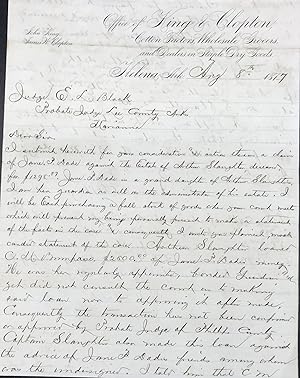 Office of King & Clopton
John King
James H. Clopton
Cotton Factors, Wholesale Grocers,
and Dealers in Staple Dry Goods
Helena, Ark Aug 8th 1877
Judge E. L. Black
Probate Judge Lee County Ark
Marianna
Dear Sir
I enclosed herewith for your consideration & action thereon a claim
of James P. against the Estate of Arthur Slaughter deceased
for James P. is a grand daughter of Arthur Slaughter
I am her guardian as well as the administrator of his estate. I
will be East purchasing a fall stock of goods when your court meets
which will prevent my being personally present to make a statement
of the facts in the case & consequently, I write you plain &
candid statement of the case. Arthur Slaughter loaned
$2000.00 of James P. money
He was her regularly appointed bonded Guardian
yet did not consult the court as to making
said loan nor to approving it after made.
Consequently the transaction has not been confirmed
or approved by Probate Judge of Phillips County
Captain Slaughter also made this loan against
the advice of James P. friends among whom
was the undersigned. I told him that C M